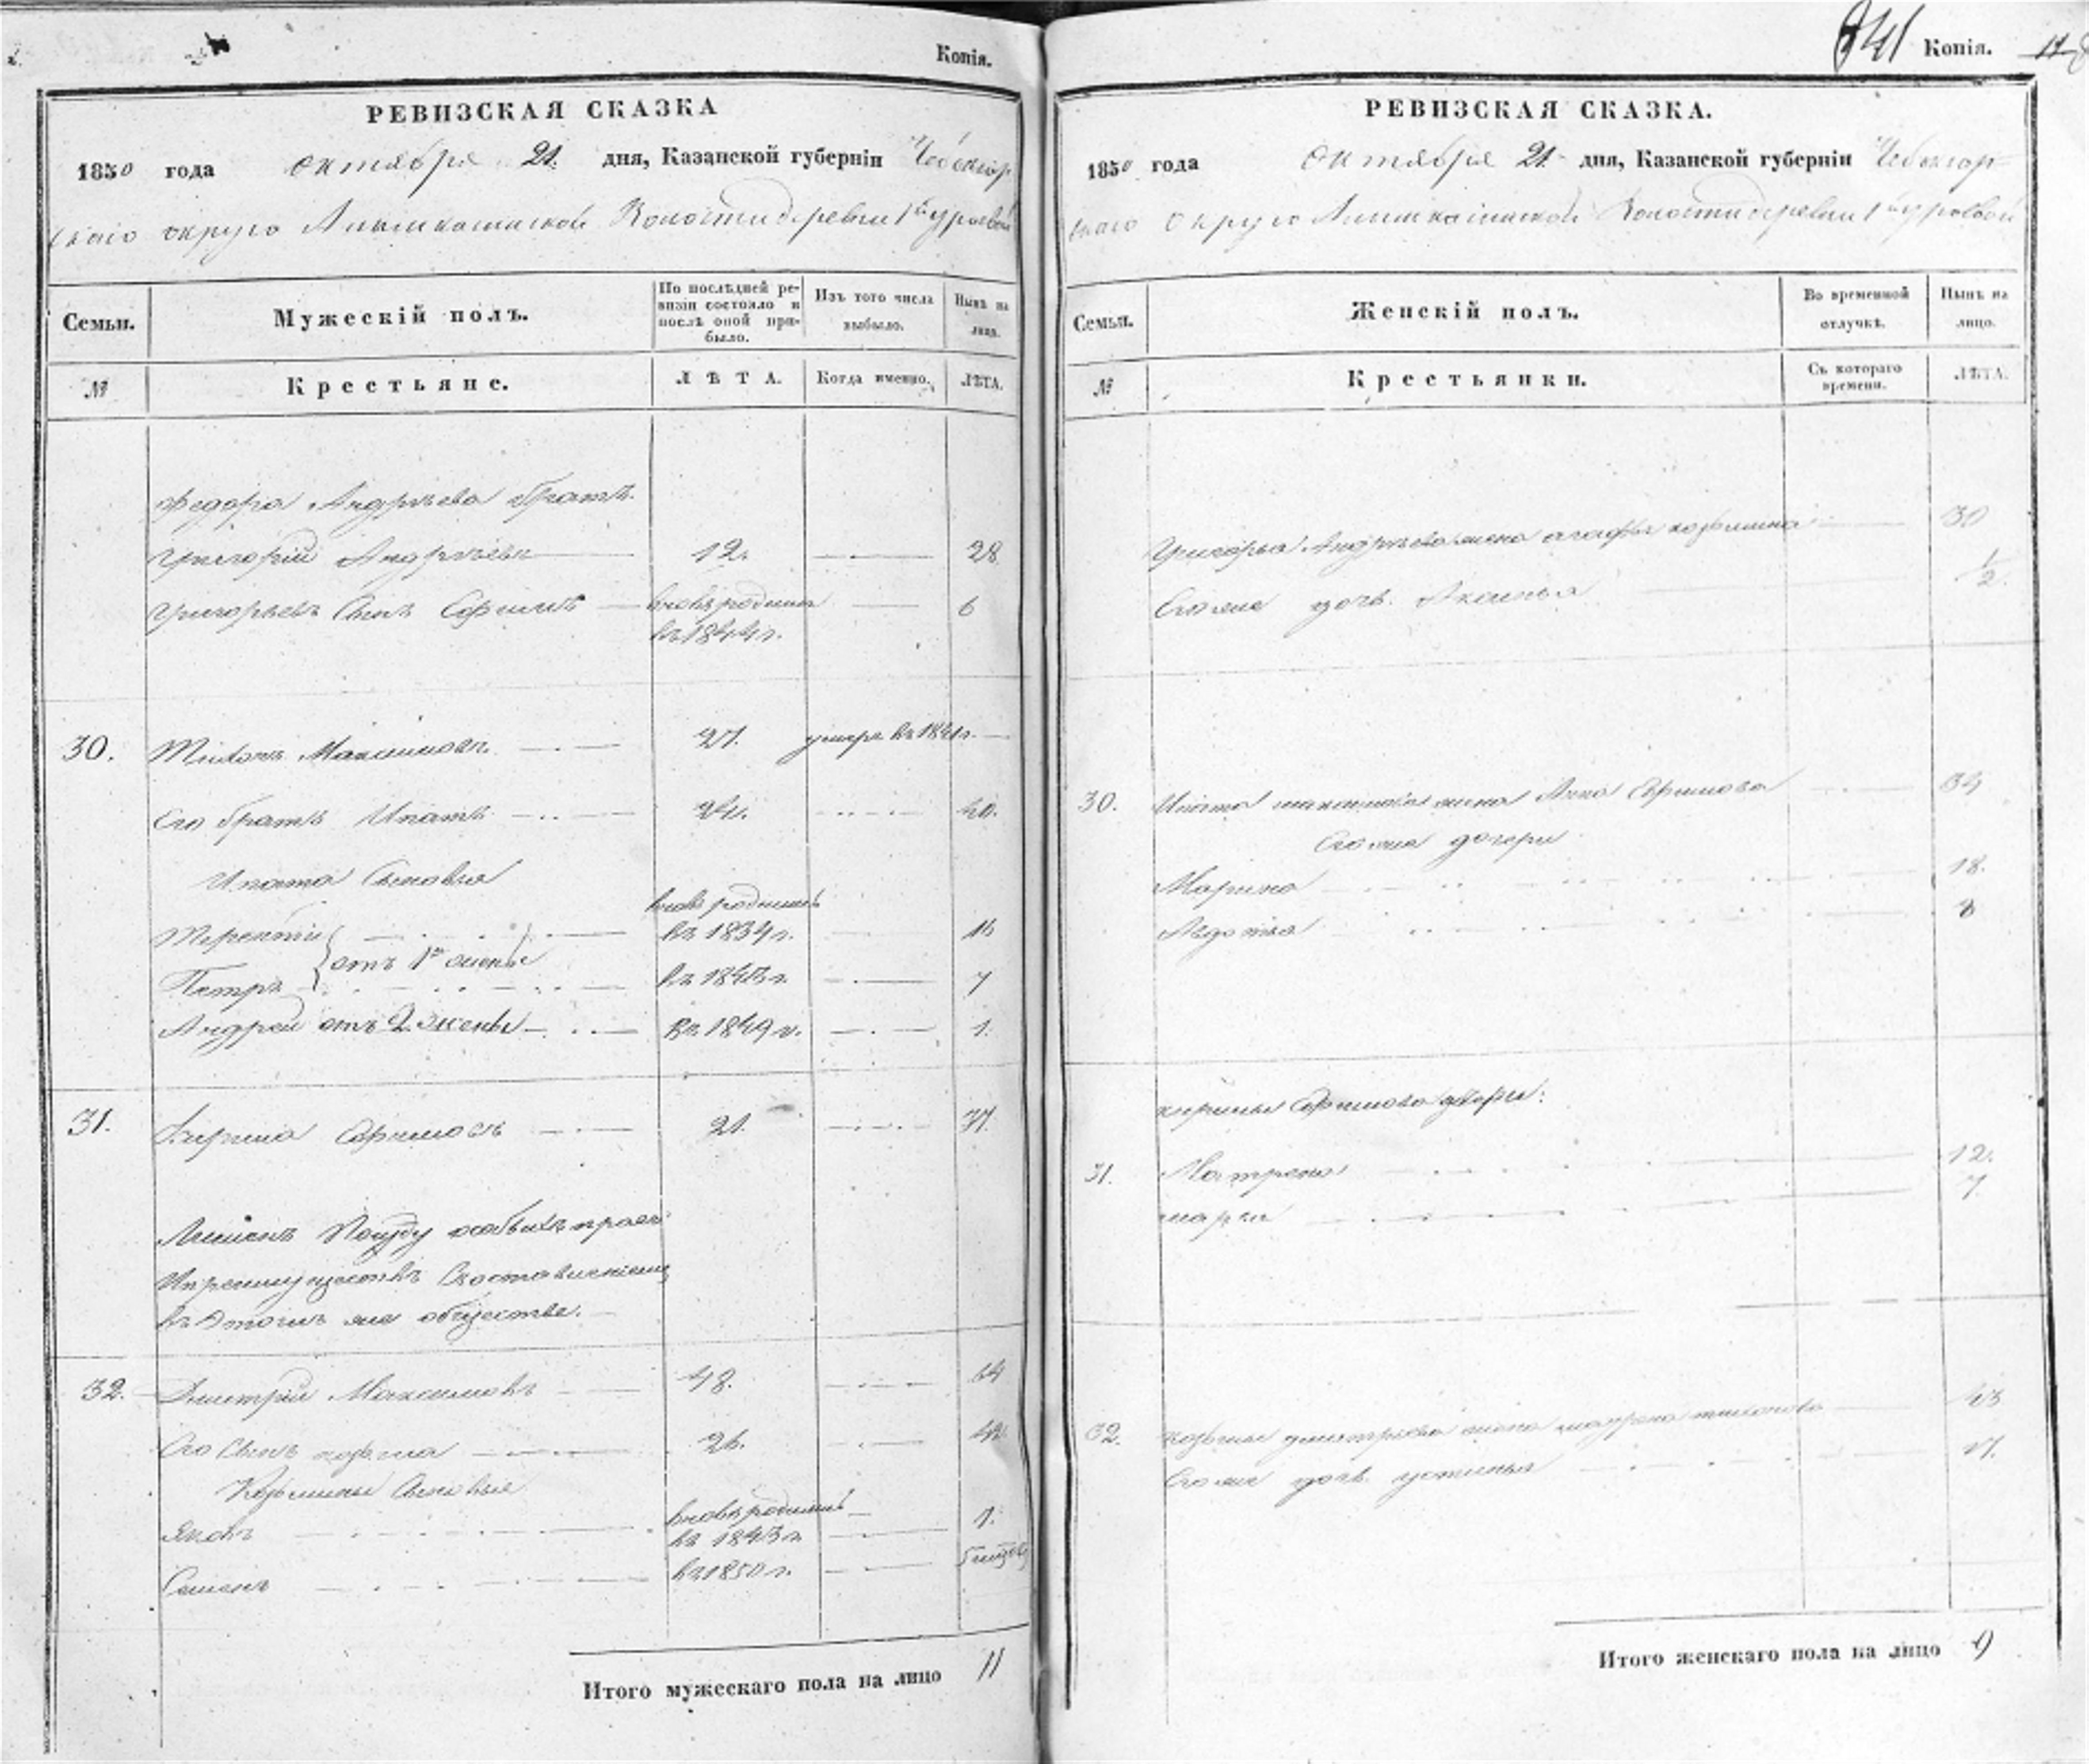 Копія.
РЕВИЗСКАЯ СКАЗКА
1850 года октября 21. дня, Казанской губерніи Чебоксар
скаго округа Волости деревни
Семьи.
Мужескій полъ.
По послѣдней ре-
визіи состояло и
послѣ оной при-
было.
Изъ того числа
выбыло.
Нынѣ на
лицо.
№
Крестьяне.
ЛѢТА.
Когда именно.
ЛѢТА.
Федора Андреева братъ
Григорій Андреевъ 12. 28
Григорьевъ Сынъ Ефимъ вновь рожденъ 6
въ 1844 г.
30. Максимовъ 27. умеръ въ 1841 г.
Его братъ Ипатъ 24. 40.
Ипата Сыновья
вновь рожденъ
Терентій въ 1834 г. 16
отъ 1й жены
Петръ 7
Андрей отъ 2 жены въ 1849 г. 1.
31. Кирила Ефимовъ 21. 37.
особыхъ правъ
въ этомъ же обществе.
32. Дмитрій Максимовъ 48. 64
Его Сынъ Козьма 26. 42
Козьмины Сыновья
вновь рожденъ
Яковъ въ 1843 г.
Семенъ въ 1850 г.
Итого мужескаго пола на лицо 11
841 Копія.
РЕВИЗСКАЯ СКАЗКА.
1850 года Октября 21 дня, Казанской губерніи Чебоксар
скаго Округа Волости деревни
Семьи.
Женскій полъ.
Во временной
отлучкѣ.
Нынѣ на
лицо.
№
Крестьянки.
Съ котораго
времени.
ЛѢТА.
Григорья Андреева жена Агафья Козьмина 30
Его же дочь Аксинья 1/2
30. Ипата Максимова жена Анна Ефимова 34
Его же дочери
Марина 18.
Авдотья 8
Кирилы Ефимова дочери:
31. Матрена 12.
Марья 7.
32. Козьмы Дмитриева жена 43
Его же дочь Устинья 17.
Итого женскаго пола на лицо 9